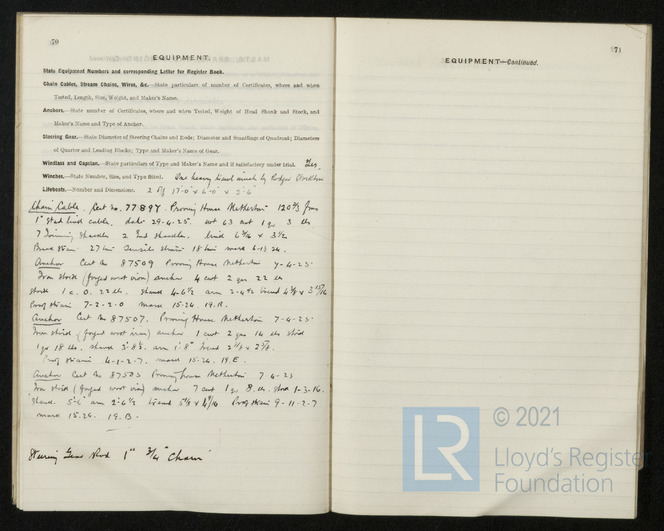 70
EQUIPMENT.
State Equipment Numbers and corresponding Letter for Register Book.
Chain Cables, Stream Chains, Wires, &c.—State particulars of number of Certificates, where and when
Tested, Length, Size, Weight, and Maker's Name.
Anchors.—State number of Certificates, where and when Tested, Weight of Head Shank and Stock, and
Maker's Name and Type of Anchor.
Steering Gear.—State Diameter of Steering Chains and Rods; Diameter and Scantlings of Quadrant; Diameters
of Quarter and Leading Blocks; Type and Maker's Name of Gear.
Windlass and Capstan.—State particulars of Type and Maker's Name and if satisfactory under trial. Yes
Winches.—State Number, Size, and Type fitted. One heavy hand winch by Rodger Stockton
Lifeboats.—Number and Dimensions. 2 Of 17'-0" x 6'-0" x 2'-6"
Chain Cable. Cert No. 77897. Proving House Netherton 120
1" Stud link cable, date 29-4-25. wt 63 cwt 1 qr 3 lbs.
7 Joining Shackles 2 End Shackles. link
27 tons Tensile strain 18 tons mark
Anchor Cert No 87509 Proving House Netherton 7-4-25
Iron stock (forged wrot iron) anchor 4 cwt 2 qrs 22 lbs
stock 1. 0. 22 lbs. shank 4-6½ arm
Proof strain 7-2-2-0 mark 15-24. 19.R.
Anchor Cert No 87507. Proving House Netherton 7-4-25.
Iron stock (forged wrot iron) anchor 1 cwt 2 qrs 14 lbs stock
1 qr 18 lbs. shank 3'-8½ arm 1'-8"
Proof strain 4-1-2-7. mark 15-24. 19.E.
Anchor Cert No 87503 Proving house Netherton 7-4-25
Iron stock (forged wrot iron) anchor 7 cwt 1 qr 8 lbs. stock 1-3-14.
Shank 5'-6" arm 2'-6½ Proof strain 9-11-2-7
mark 15-24. 19.B.
Steering Gear Rod 1" ¾" Chain
271
EQUIPMENT—Continued.
LR
© 2021
Lloyd's Register
Foundation